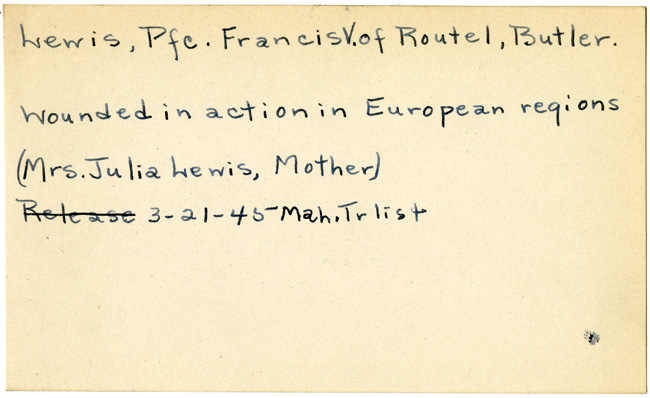 Lewis, Pfc. Francis V. of Route 1, Butler.
Wounded in action in European regions
(Mrs. Julia Lewis, Mother)
Release 3-21-45 Mah. Tr list